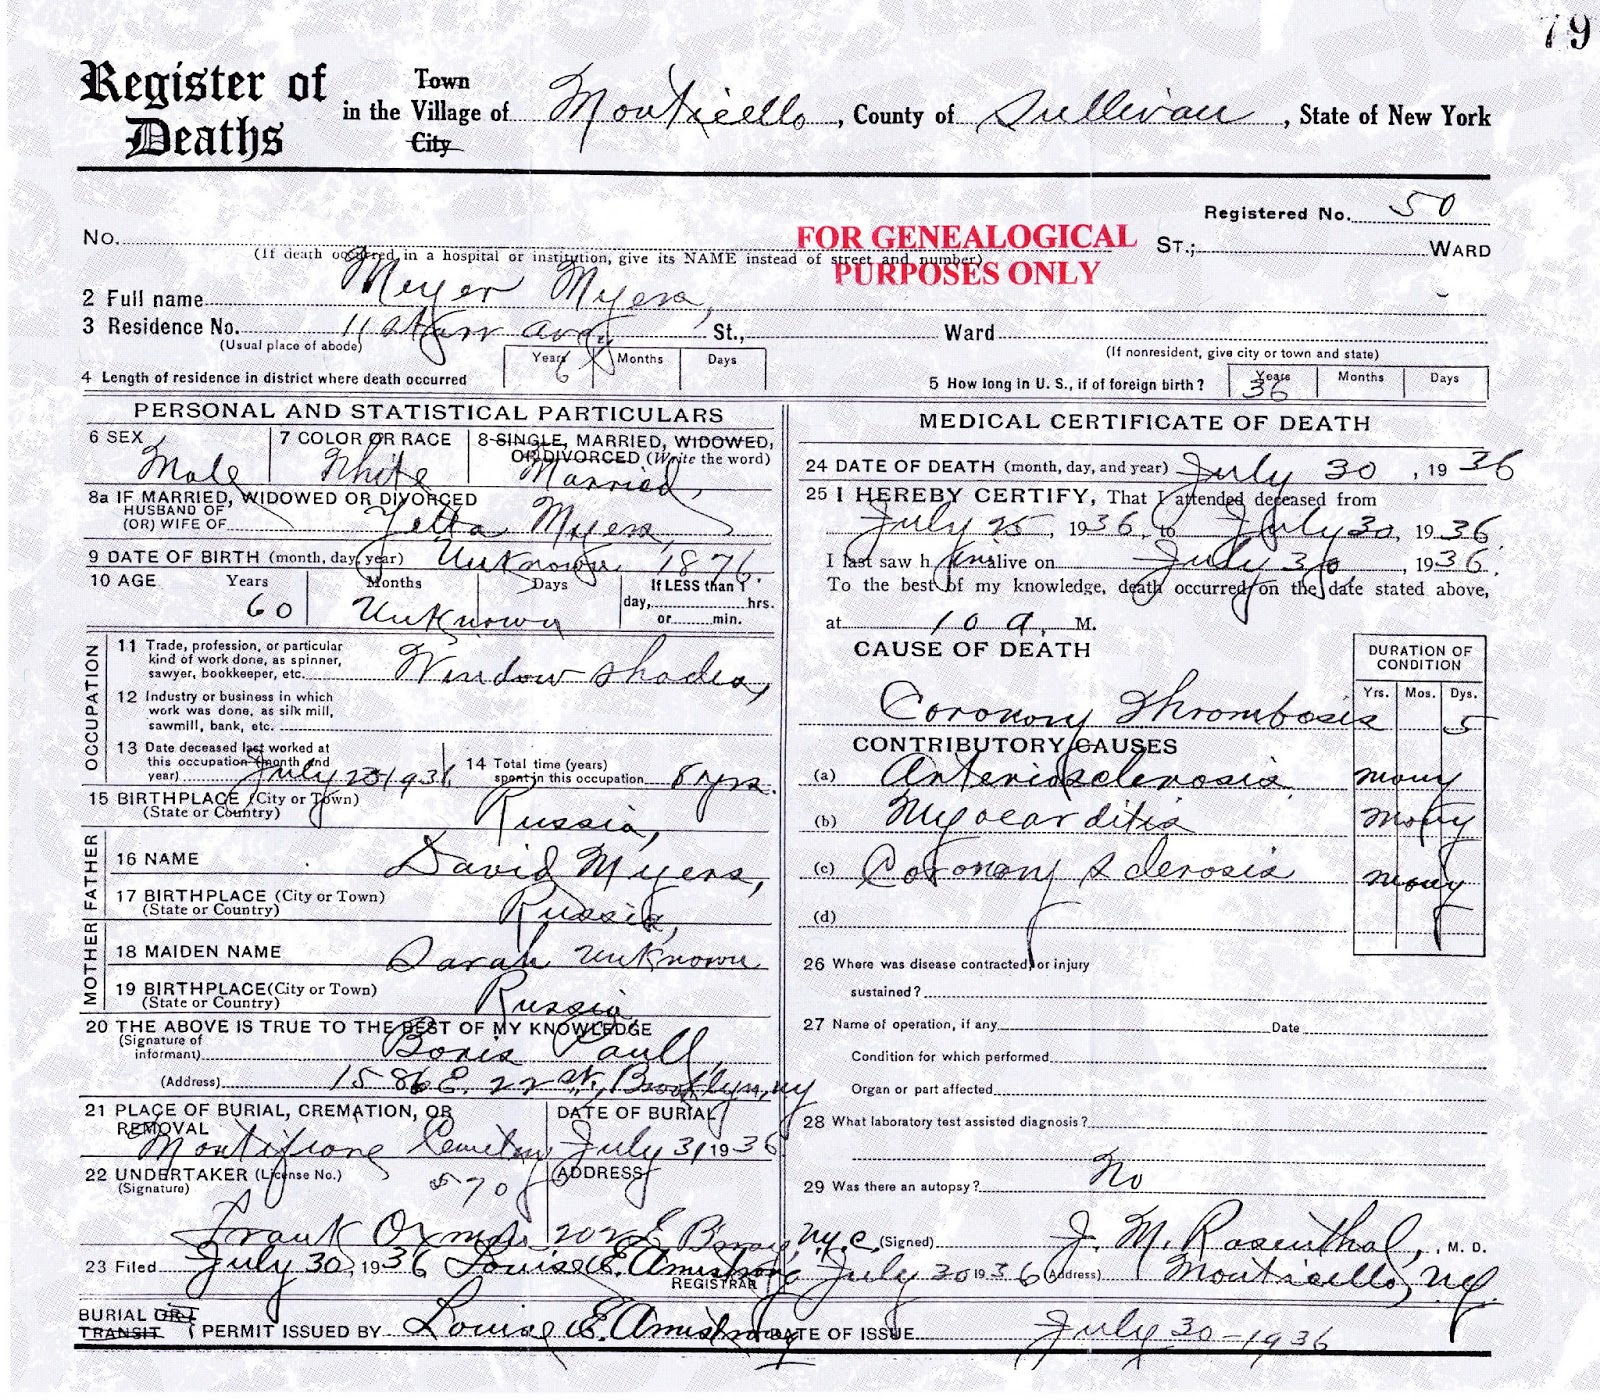 79
Register of Deaths
Town
in the Village of Monticello, County of Sullivan, State of New York
City
Registered No. 50
No. ST.; WARD
(If death occurred in a hospital or institution, give its NAME instead of street and number)
FOR GENEALOGICAL
PURPOSES ONLY
2 Full name Meyer Myers,
3 Residence No. 11 Starr Ave, St., Ward
(Usual place of abode) (If nonresident, give city or town and state)
4 Length of residence in district where death occurred Years 6 Months Days
5 How long in U. S., if of foreign birth? Years 36 Months Days
PERSONAL AND STATISTICAL PARTICULARS
6 SEX Male
7 COLOR OR RACE White
8 SINGLE, MARRIED, WIDOWED, OR DIVORCED (Write the word) Married,
8a IF MARRIED, WIDOWED OR DIVORCED
HUSBAND OF
(OR) WIFE OF Yetta Myers,
9 DATE OF BIRTH (month, day, year) Unknown 1876.
10 AGE Years 60 Months Unknown Days If LESS than 1 day, hrs. or min.
OCCUPATION
11 Trade, profession, or particular kind of work done, as spinner, sawyer, bookkeeper, etc. Window shades,
12 Industry or business in which work was done, as silk mill, sawmill, bank, etc.
13 Date deceased last worked at this occupation (month and year) July 1936
14 Total time (years) spent in this occupation 8 yrs.
15 BIRTHPLACE (City or Town)
(State or Country) Russia,
FATHER
16 NAME David Myers,
17 BIRTHPLACE (City or Town)
(State or Country) Russia,
MOTHER
18 MAIDEN NAME Sarah Unknown
19 BIRTHPLACE (City or Town)
(State or Country) Russia,
20 THE ABOVE IS TRUE TO THE BEST OF MY KNOWLEDGE
(Signature of informant) Boris Paull,
(Address) 1586 E. 22 St, Brooklyn, ny
21 PLACE OF BURIAL, CREMATION, OR REMOVAL Montifiore Cemetery
DATE OF BURIAL July 31 1936
22 UNDERTAKER (License No.) 570
(Signature) Frank
ADDRESS 202 E N.Y.C.
23 Filed July 30, 1936 Louise E. Armstrong
REGISTRAR
BURIAL OR TRANSIT PERMIT ISSUED BY Louise E. Armstrong DATE OF ISSUE July 30-1936
MEDICAL CERTIFICATE OF DEATH
24 DATE OF DEATH (month, day, and year) July 30, 1936
25 I HEREBY CERTIFY, That I attended deceased from
July 25, 1936, to July 30, 1936
I last saw h im alive on July 30, 1936.
To the best of my knowledge, death occurred on the date stated above,
at 10 a. M.
CAUSE OF DEATH
DURATION OF CONDITION
Yrs. Mos. Dys.
Coronary Thrombosis 5
CONTRIBUTORY CAUSES
(a) Arteriosclerosis many
(b) Myocarditis many
(c) Coronary Sclerosis many
(d)
26 Where was disease contracted, or injury
sustained?
27 Name of operation, if any Date
Condition for which performed
Organ or part affected
28 What laboratory test assisted diagnosis?
29 Was there an autopsy? No
(Signed) J. M. Rosenthal, M. D.
July 30 1936 (Address) Monticello, N.Y.